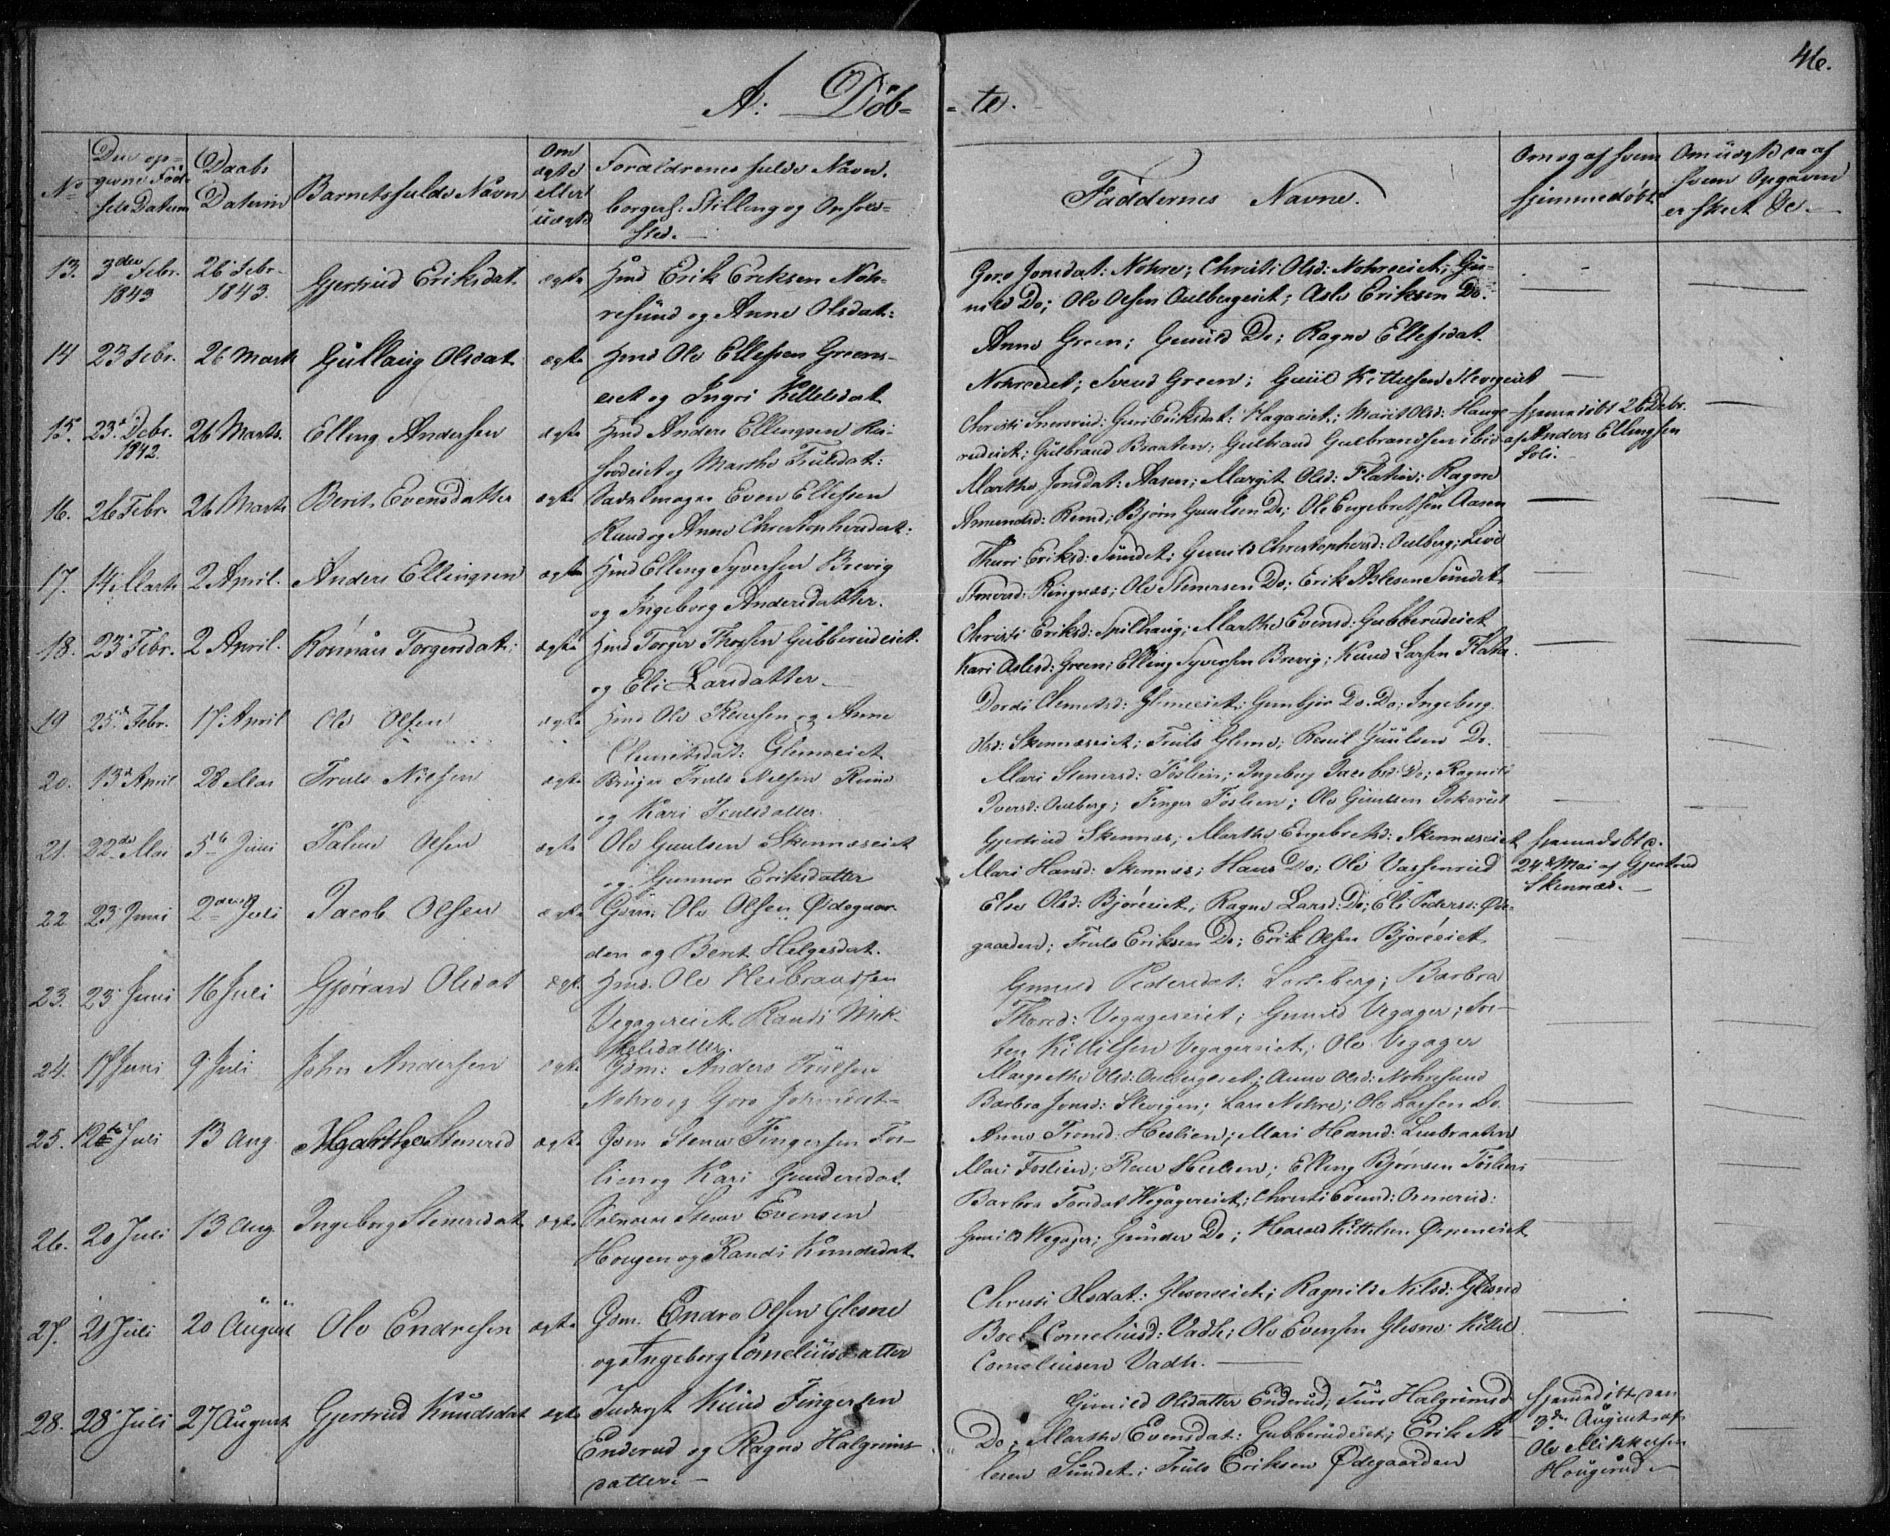 46.
A: Døb-
-te.
No
Den op-
givne Fød-
sels Datum
Daabs
Datum
Barnets fulde Navn
Om
ægte
eller
uægte
Forældrenes fulde Navn.
borgerl: Stilling og Opholds-
sted.
Faddernes Navne.
Om og af hvem
hjemmedøbt
Om udgt Daa af
hvem Opgaven
er skeet De.
13. 3die Febr. 1843
26 Febr. 1843.
Gjertrud Eriksdat.
ægte
Hmd Erik Eriksen Noh-
resund og Anne Olsdat:
Goro Jonsdat: Nohre; Christi Olsd: Nohreeiet; Gu-
nild Do; Ole Olsen Oulbergeiet; Aslo Eriksen Do.
14 23 Febr.
26 Marts
Gullaug Olsdat
ægte
Hmd Ole Ellefsen Greens-
eiet og Ingri Kittelsdat
Anne Green; Gunild Do; Ragne Ellefsdat
Nohreeiet; Svend Green; Guul Kittelsen Slevigeiet
15. 23 Debr. 1842.
26 Marts.
Elling Andersen
ægte
Hmd Anders Ellingsen
og Marthe Trulsdat:
Christi Snersrud; Guri Eriksdat: Hagaeiet; Marit Olsd: Hauge-
rudeiet; Gulbrand Braaten; Gulbrand Gulbrandsen ibid
hjemmedøbt 26 Debr.
af Anders Ellingsen
Soli.
16. 26 Febr.
26 Marts
Berit Evensdatter
ægte
Sadelmager Even Ellefsen
Ruud og Anne Christophersdat:
Marthe Jonsdat: Aasen; Margit Olsd: Flatin; Ragne
Amundsd: Ruud; Bjørn Guulsen Do; Ole Engebretsen Aasen
17. 14 Marts
2 April.
Anders Ellingsen
ægte
Hmd Elling Syversen Brevig
og Ingeborg Andersdatter.
Thuri Eriksd: Sundet; Gunild Christophersd: Oulberg; Live
Stenersd: Ringnæs; Ole Stenersen Do; Erik Aslesen Sundet
18. 23 Febr.
2 April.
Rønnau Torgersdat:
ægte
Hmd Torger Thorsen Gubberudeiet
og Eli Larsdatter
Christi Eriksd: Spilhaug; Marthe Evensd: Gubberudeiet
Kari Aslesd: Green; Elling Syversen Brevig; Knud Larsen Flata
19 25 Febr.
17 April
Ole Olsen
ægte
Hmd Ole Reiersen og Anne
Clemetsdat: Glesneeiet
Dordi Clemetsd: Glesneeiet; Gunbjør Do. Do; Ingeborg
Olsd: Skennæseiet; Truls Glesne; Guulsen Do.
20. 13 April
28 Mai
Truls Nilsen
ægte
Bruger Truls Nilsen Ruud
og Kari Trulsdatter.
Mari Stenersd: Foslien; Ingeborg Jacobsd: Do; Ragnild
Iversd: Oulberg; Finger Foslien; Ole Guulsen
21. 22de Mai
5te Juni
Palme Olsen
ægte
Ole Guulsen Skennæseiet
og Gunnor Eriksdatter
Gjertrud Skennæs; Marthe Engebretsd: Skennæseiet
Mari Hansd: Skennæs; Hans Do; Ole Vassenrud
hjemmedøbt d.
24 Mai af Gjertrud
Skennæs.
22 23 Juni
2den Juli
Jacob Olsen
ægte
Gsm. Ole Olsen Ødegaar-
den og Berit Helgesdat.
Else Olsd: Bjøreeiet; Ragne Larsd: Do; Eli Pedersd: Øde-
gaarden; Truls Eriksen Do; Erik Olsen Bjøreeiet
23. 23 Juni
16 Juli
Gjøran Olsdat
ægt.
Hmd. Ole Herbrandsen
Vegagereiet Randi Mik-
kelsdatter.
Gunild Pedersdat: Lorteberg; Barbra
Thorsd: Vegagereiet; Gunild Vegager; Tor-
sten Kittilsen Vegagereiet; Ole Vegager
24. 17 Juni
9 Juli
John Andersen
ægte
Gsm: Anders Trulsen
Nohre og Goro Johnsdat-
Margrethe Olsd: Oulbergeiet; Anne Olsd: Nohresund
Barbra Jonsd: Slevigen; Lars Nohre; Ole Larsen Do
25. 12te Juli
13 Aug
Marthe Stenersd
ægte
Gsm Stener Fingersen Fos-
lien og Kari Gundersdat
Anne Tronsd: Heslien; Mari Hansd: Linbraaten
Mari Foslien; Elling Bjørnsen Foslien
26. 20 Juli
13 Aug
Ingeborg Stenersdat
ægte
Stener Evensen
Hougen og Randi Knudsdat
Barbra Torsdat Vegagereiet; Christi Evensd: Ormerud:
Gunild Vegager; Gunder Do; Harald Kittelsen
27. 21 Juli
20 August
Ole Endresen
ægte
Gsm. Endre Olsen Glesne
og Ingeborg Corneliusdatter
Christi Olsdat: Glesneeiet; Ragnild Nilsd: Glesne
Boel Corneliusd: Vadh; Ole Evensen Glesne. Kittel
Corneliusen Vadh.
28. 28 Juli
27 August
Gjertrud Knudsdat
ægte
Inderst Knud Fingersen
Enderud og Ragne Halgrims-
datter.
Gunild Olsdatter Enderud; Turi Halgrimsd
Do; Marthe Evensdat: Gubberudeiet; Erik As-
lesen Sundet; Truls Eriksen Ødegaarden
hjemmedøbt den
3die August af
Ole Mikkelsen
Hougerud